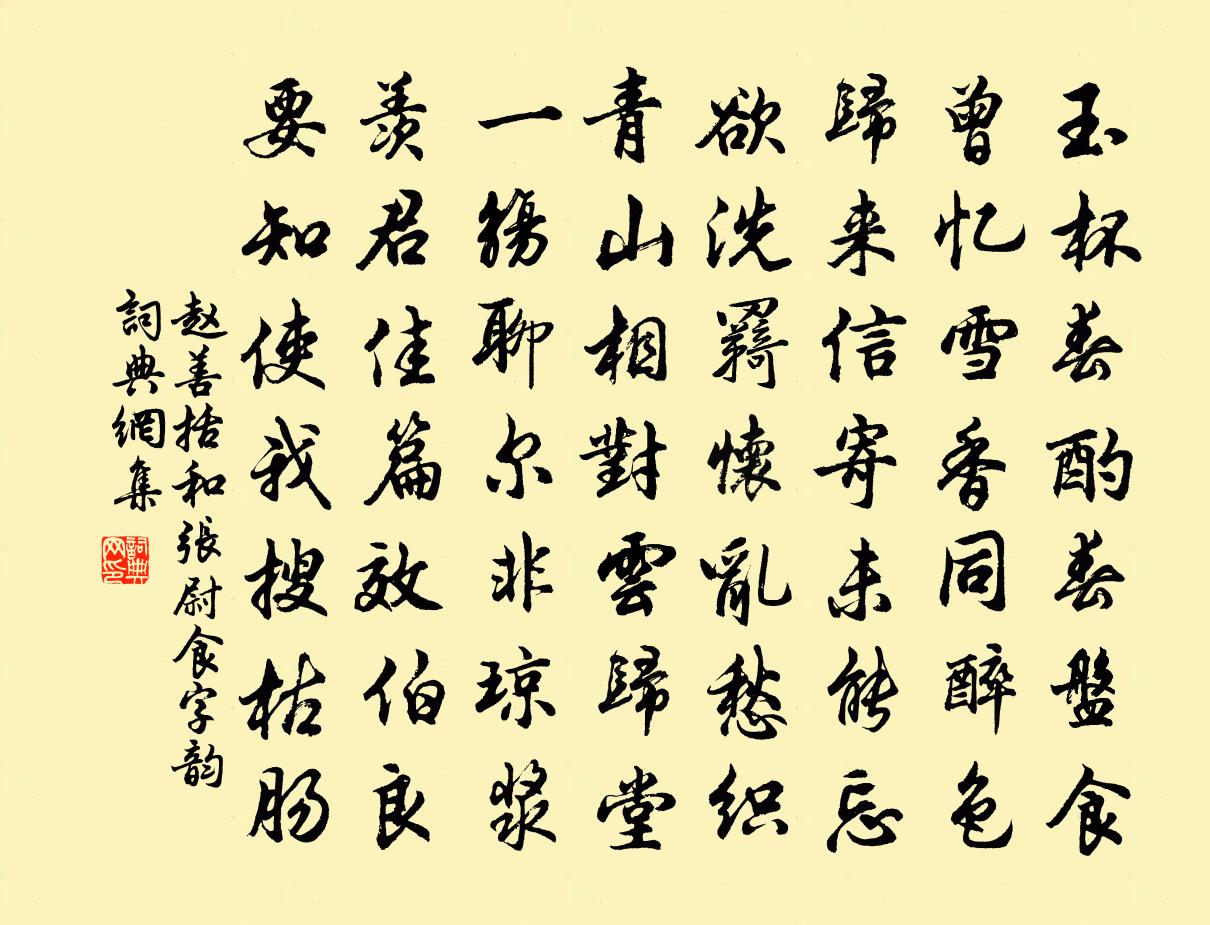 玉杯春酌春盤食
曾忆雪香同醉色
歸来信寄未能忘
欲洗羇懷亂愁织
青山相對雲歸堂
一觴聊尔非琼漿
羨君佳篇效伯良
要知使我搜枯肠
赵善括和張尉食字韵
詞典網集
詞典
网印